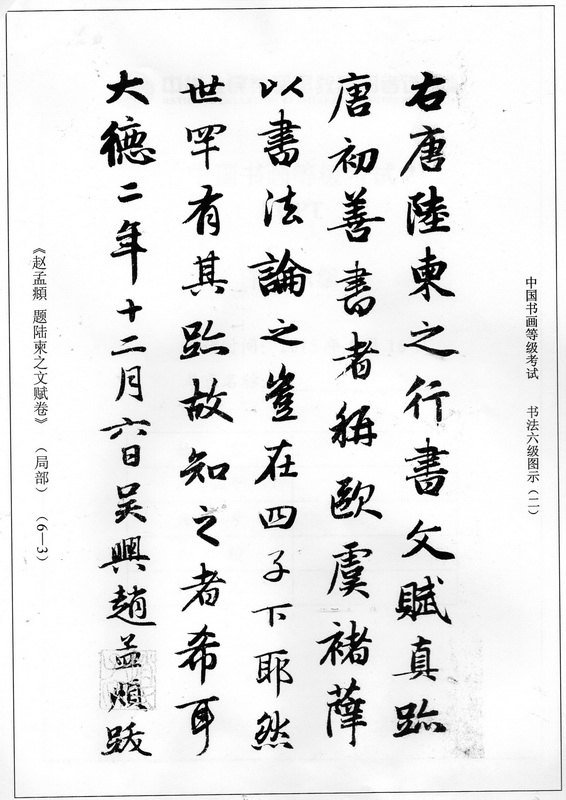 中国书画等级考试 书法六级图示（二）
右唐陸柬之行書文賦真跡
唐初善書者稱歐虞褚薛
以書法論之豈在四子下耶然
世罕有其跡故知之者希耳
大德二年十二月六日吴興趙孟頫跋
《赵孟頫 题陆柬之文赋卷》 （局部） （6—3）